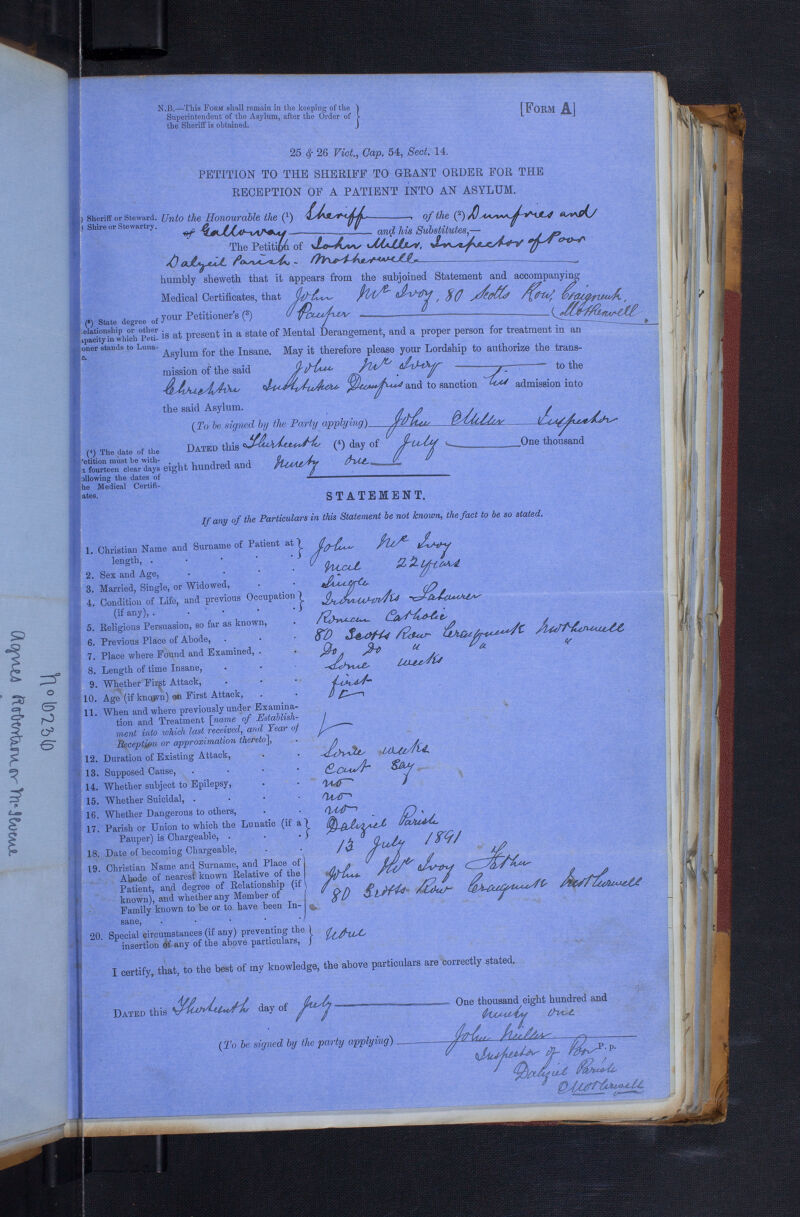 N.B.—This Form shall remain in the keeping of the
Superintendent of the Asylum, after the Order of
the Sheriff is obtained.
[Form A]
25 & 26 Vict., Cap. 54, Sect. 14.
PETITION TO THE SHERIFF TO GRANT ORDER FOR THE
RECEPTION OF A PATIENT INTO AN ASYLUM.
) Sheriff or Steward.
) Shire or Stewartry.
Unto the Honourable the (1) Sheriff of the (2) Dumfries and
of Galloway and his Substitutes,—
The Petition of John Miller, Inspector of Poor
Dalzeil Parish - Motherwell
humbly sheweth that it appears from the subjoined Statement and accompanying
Medical Certificates, that John McIvoy, 80 Scotts Row, Craigneuk,
your Petitioner's (3) Pauper Motherwell.
(3) State degree of
relationship or other
apacity in which Peti-
oner stands to Luna-
c.
is at present in a state of Mental Derangement, and a proper person for treatment in an
Asylum for the Insane. May it therefore please your Lordship to authorize the trans-
mission of the said John McIvoy to the
Chrichton Institution Dumfries and to sanction his admission into
the said Asylum.
(To be signed by the Party applying) John Miller Inspector
(4) The date of the
Petition must be with-
n fourteen clear days
ollowing the dates of
he Medical Certifi-
ates.
Dated this Thirteenth (4) day of July One thousand
eight hundred and Ninety One
STATEMENT.
If any of the Particulars in this Statement be not known, the fact to be so stated.
1. Christian Name and Surname of Patient at
length, . John McIvoy
2. Sex and Age, Male 22 years
3. Married, Single, or Widowed, Single
4. Condition of Life, and previous Occupation
(if any), . Ironworks Labourer
5. Religious Persuasion, so far as known, Roman Catholic
6. Previous Place of Abode, 80 Scotts Row Craigneuk Motherwell
7. Place where Found and Examined, Do Do " " "
8. Length of time Insane, Some weeks
9. Whether First Attack, first
10. Age (if known) on First Attack,
11. When and where previously under Examina-
tion and Treatment [name of Establish-
ment into which last received, and Year of
Reception or approximation thereto],
12. Duration of Existing Attack, Some weeks
13. Supposed Cause, Cant Say
14. Whether subject to Epilepsy, no
15. Whether Suicidal, no
16. Whether Dangerous to others, no
17. Parish or Union to which the Lunatic (if a
Pauper) is Chargeable, Dalziel Parish
18. Date of becoming Chargeable, 13 July 1891
19. Christian Name and Surname, and Place of
Abode of nearest known Relative of the
Patient, and degree of Relationship (if
known), and whether any Member of
Family known to be or to have been In-
sane, John McIvoy Father
80 Scotts Row Craigneuk Motherwell
20. Special circumstances (if any) preventing the
insertion of any of the above particulars, None
I certify, that, to the best of my knowledge, the above particulars are correctly stated.
Dated this Thirteenth day of July One thousand eight hundred and
ninety one
(To be signed by the party applying) John Miller
Inspector of Poor P. p.
Dalziel Parish
Motherwell
No 6236
Agnes Robertson or McIlvene